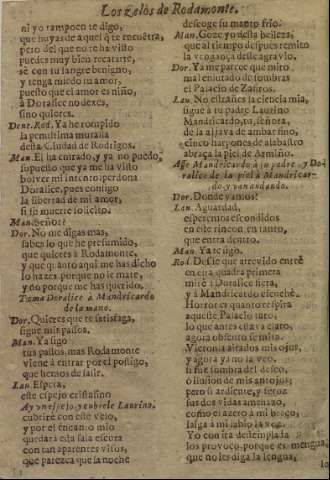 Los zelos de Rodamonte.
ni yo tampoco te digo,
que huyas de aquel q̃ te encuẽtra,
pero del que no te ha visto
puedes muy bien recatarte,
sè con tu sangre benigno,
y tenga miedo tu amor,
puesto que el amor es niño,
à Doralice no dexes,
sino quieres.
Dent. Rod. Ya he rompido
la penultima muralla
desta Ciudad de Rodrigos.
Man. El ha entrado, y ya no puedo,
supuesto que ya me ha visto
bolver mi intento, perdona
Doralice, pues consigo
la libertad de mi amor,
si su muerte solicito.
Man. Señor?
Dor. No me digas mas,
sabes lo que he presumido,
que quieres à Rodamonte,
y que quanto aqui me has dicho
lo hazes porque no le mate,
y no porque me has querido.
Toma Doralice à Mandricardo
de la mano.
Dor. Quieres que te satisfaga,
sigue mis passos.
Man. Ya sigo
tus passos, mas Rodamonte
viene à entrar por el postigo,
que hemos de salir.
Lau. Espera,
este espejo cristalino
Ay un espejo, y cubrele Laurino.
cubrirè con este velo,
y por el encanto mio
quedarà esta sala escura
con tan aparentes visos,
que parezca que la noche
descoge su manto frio.
Man. Goze yo desta belleza,
que al tiempo despues remito
la vengança deste agravio.
Dor. Ya me parece que miro
mal enlutado de sombras
el Palacio de Zafiros.
Lau. No estrañes la ciencia mia,
sigue à tu padre Laurino
Mandricardo, tu, señora,
de la aljava de ambar fino,
cinco harpones de alabastro
abraça la piel de Armiño.
Asse Mandricardo à su padre, y Do-
ralice de la piel à Mandricar-
do, y van andando.
Dor. Donde vamos?
Lau. Aguardad,
esperemos escondidos
en este rincon en tanto,
que entra dentro.
Man. Ya te sigo.
Rod. Desde que atrevido entrè
en esta quadra primera
mirè à Doralice fiera,
y à Mandricardo escuchè.
Horror es quanto respira
aqueste Palacio raro,
lo que antes estava claro,
agora obscuro se mira.
Vieron la altrados mis ojos,
y agora ya no la veo.
si fue sombra del deseo,
o ilusion de mis antojos;
pero si ardiente, y feroz
las dos vidas amenazo,
como el azero à mi braço,
salga à mi labio la voz.
Yo con ira destemplada
los provoco, porque es mengua,
que no les diga la lengua,
lo